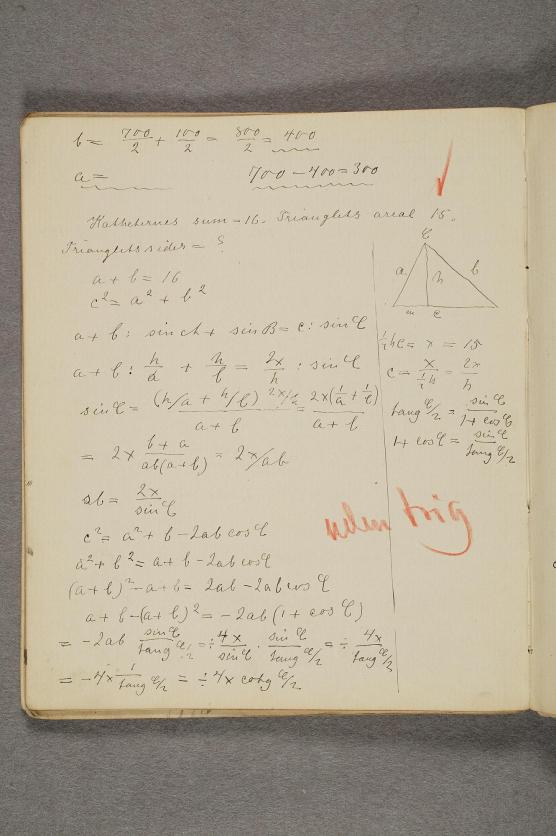 b = 700/2 + 100/2 = 800/2 = 400
a = 700 - 400 = 300
Katheternes sum = 16. Trianglets areal 15.
Trianglets sider = ?
a + b = 16
c² = a² + b²
a + b : sin A + sin B = c : sin C
a + b : h/a + h/b = 2x/h : sin C
sin C = (h/a + h/b) 2x/h / a + b = 2x(1/a + 1/b) / a + b
= 2x b + a / ab(a+b) = 2x/ab
ab = 2x / sin C
c² = a² + b - 2ab cos C
a² + b² = a + b - 2ab cos C
(a+b)² - a + b = 2ab - 2ab cos C
a + b - (a+b)² = -2ab (1 + cos C)
= -2ab sin C / tang C/2 = ÷ 4x / sin C · sin C / tang C/2 = ÷ 4x / tang C/2
= -4x 1 / tang C/2 = ÷ 4x cotg C/2
C
a h b
c
½hc = x = 15
c = x / ½h = 2x / h
tang C/2 = sin C / 1 + cos C
1 + cos C = sin C / tang C/2
uden trig